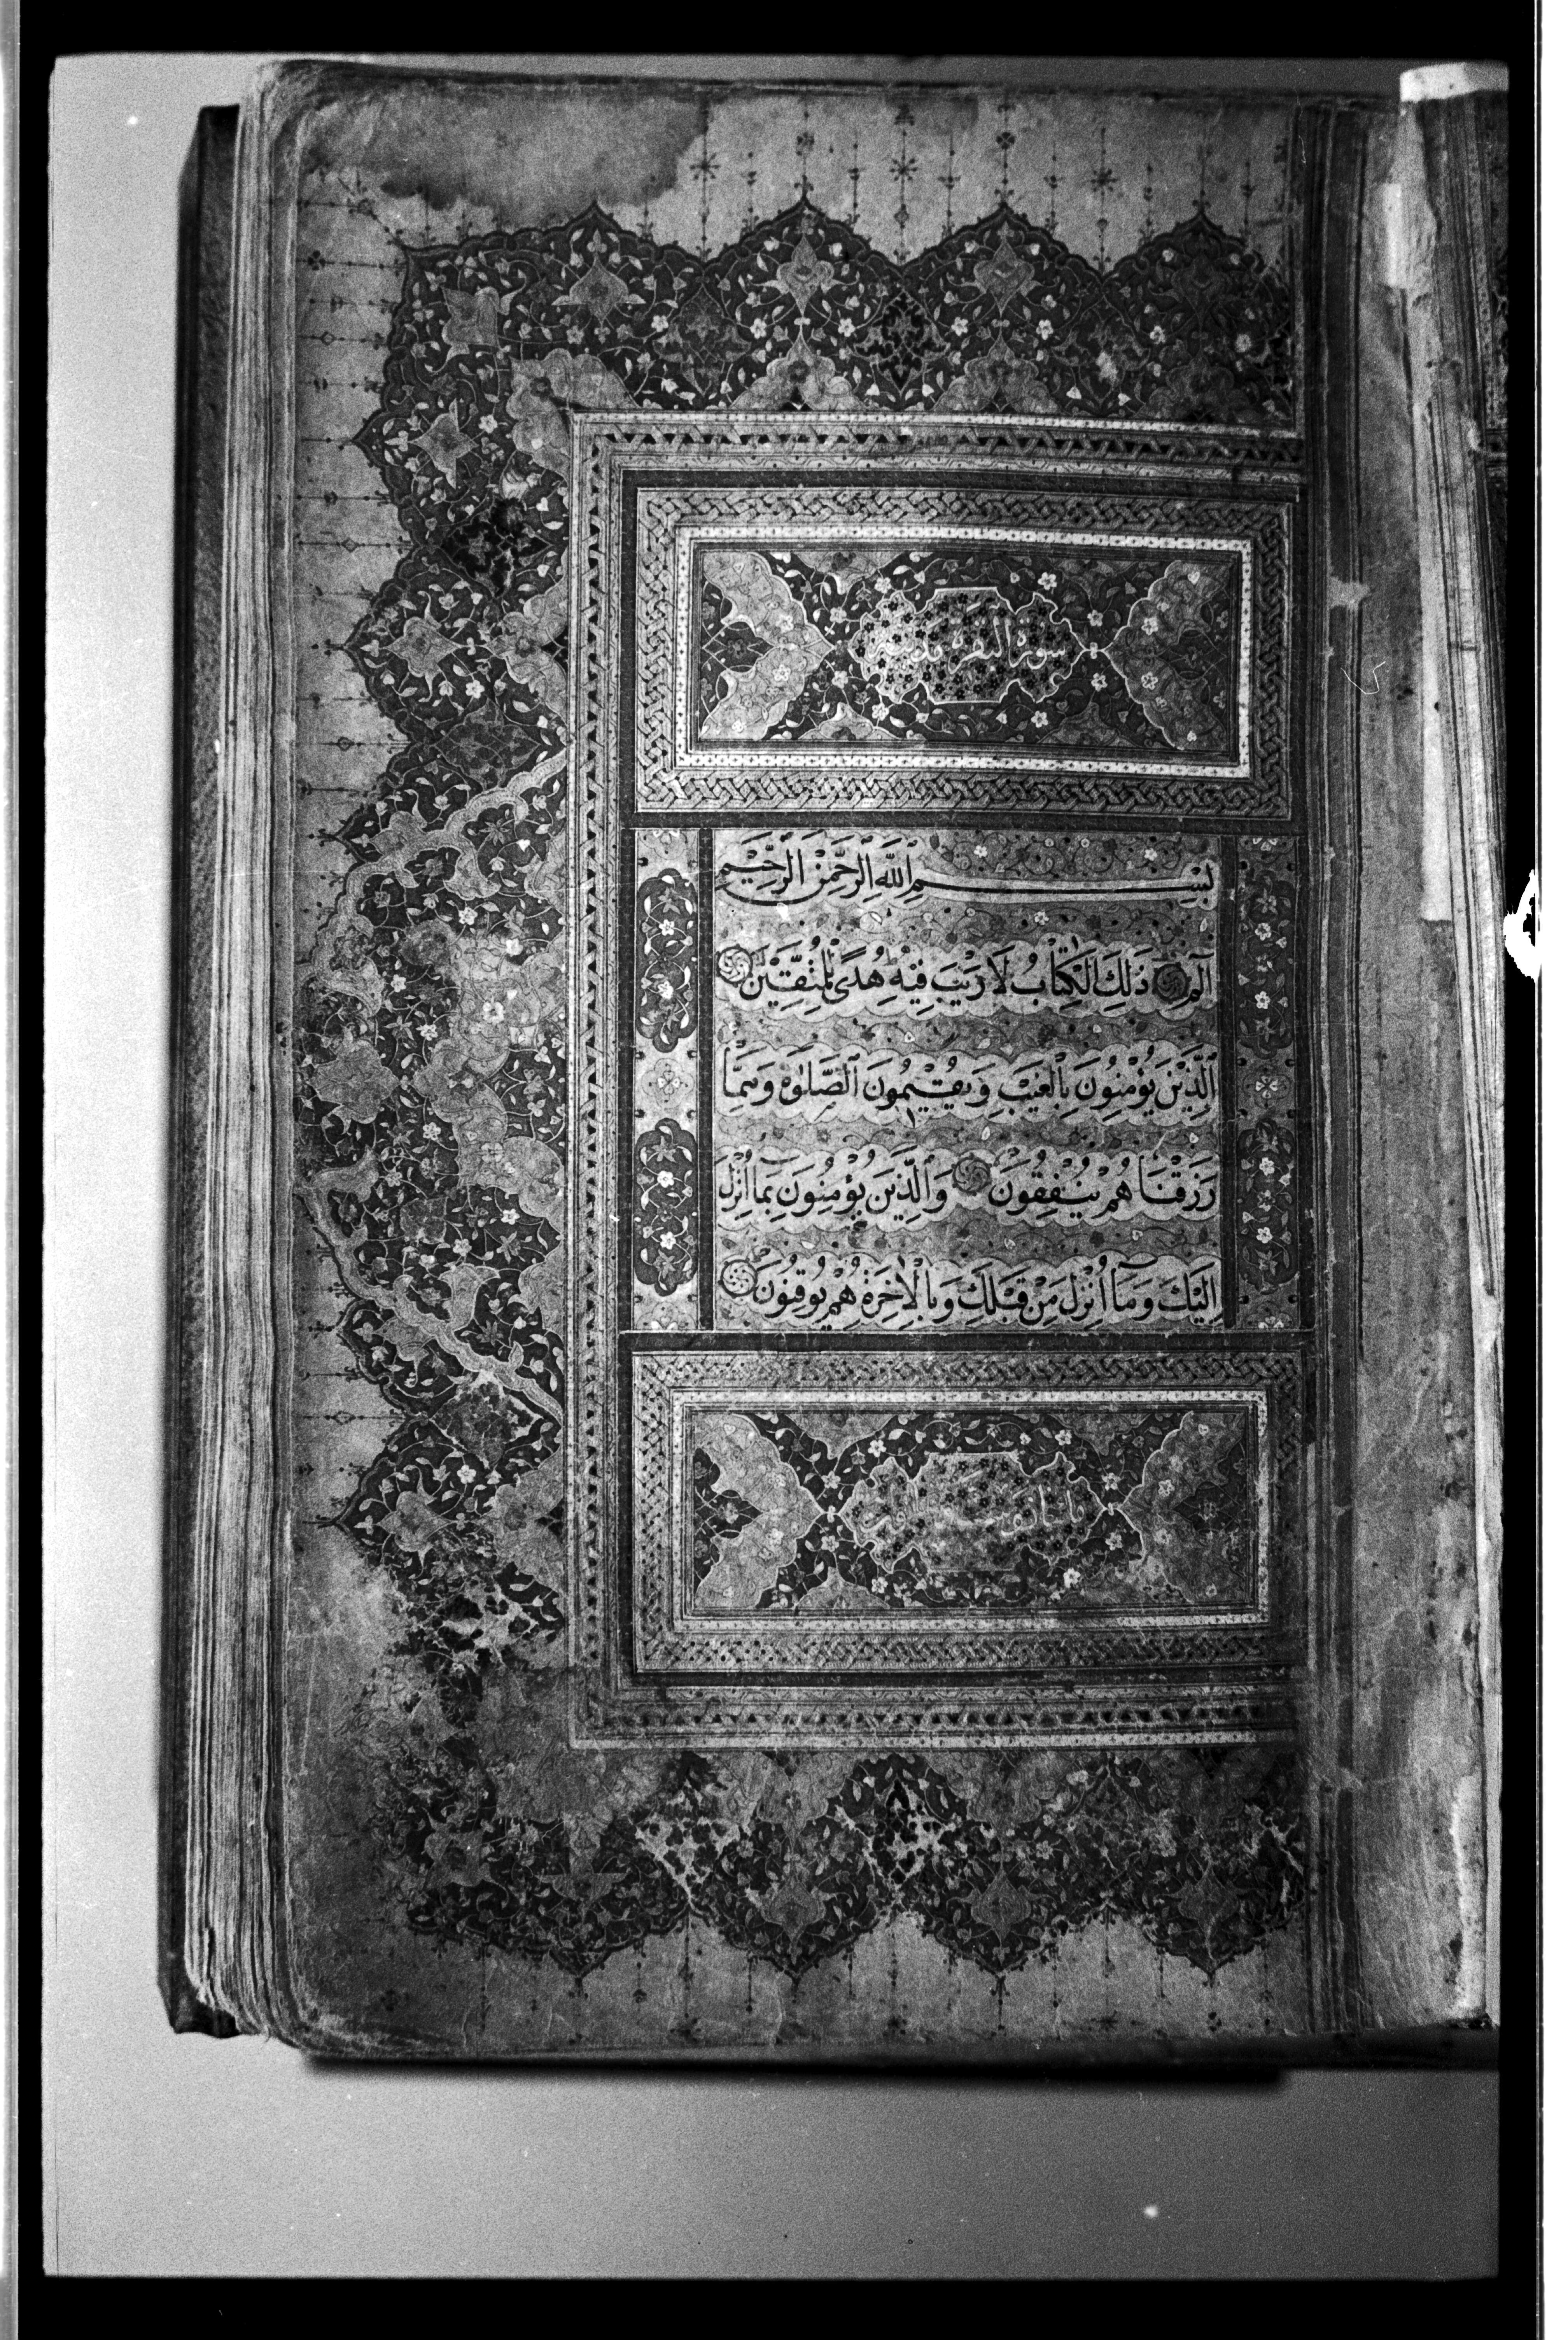 سورة البقرة مدنية
بِسْمِ ٱللَّهِ ٱلرَّحْمٰنِ ٱلرَّحِيمِ
آلم ذَلِكَ الْكِتَابُ لَا رَيْبَ فِيهِ هُدًى لِلْمُتَّقِينَ
ٱلَّذِينَ يُؤْمِنُونَ بِالْغَيْبِ وَيُقِيمُونَ ٱلصَّلٰوةَ وَمِمَّا
رَزَقْنَاهُمْ يُنْفِقُونَ وَٱلَّذِينَ يُؤْمِنُونَ بِمَا أُنْزِلَ
إِلَيْكَ وَمَآ أُنْزِلَ مِنْ قَبْلِكَ وَبِالْاٰخِرَةِ هُمْ يُوقِنُونَ